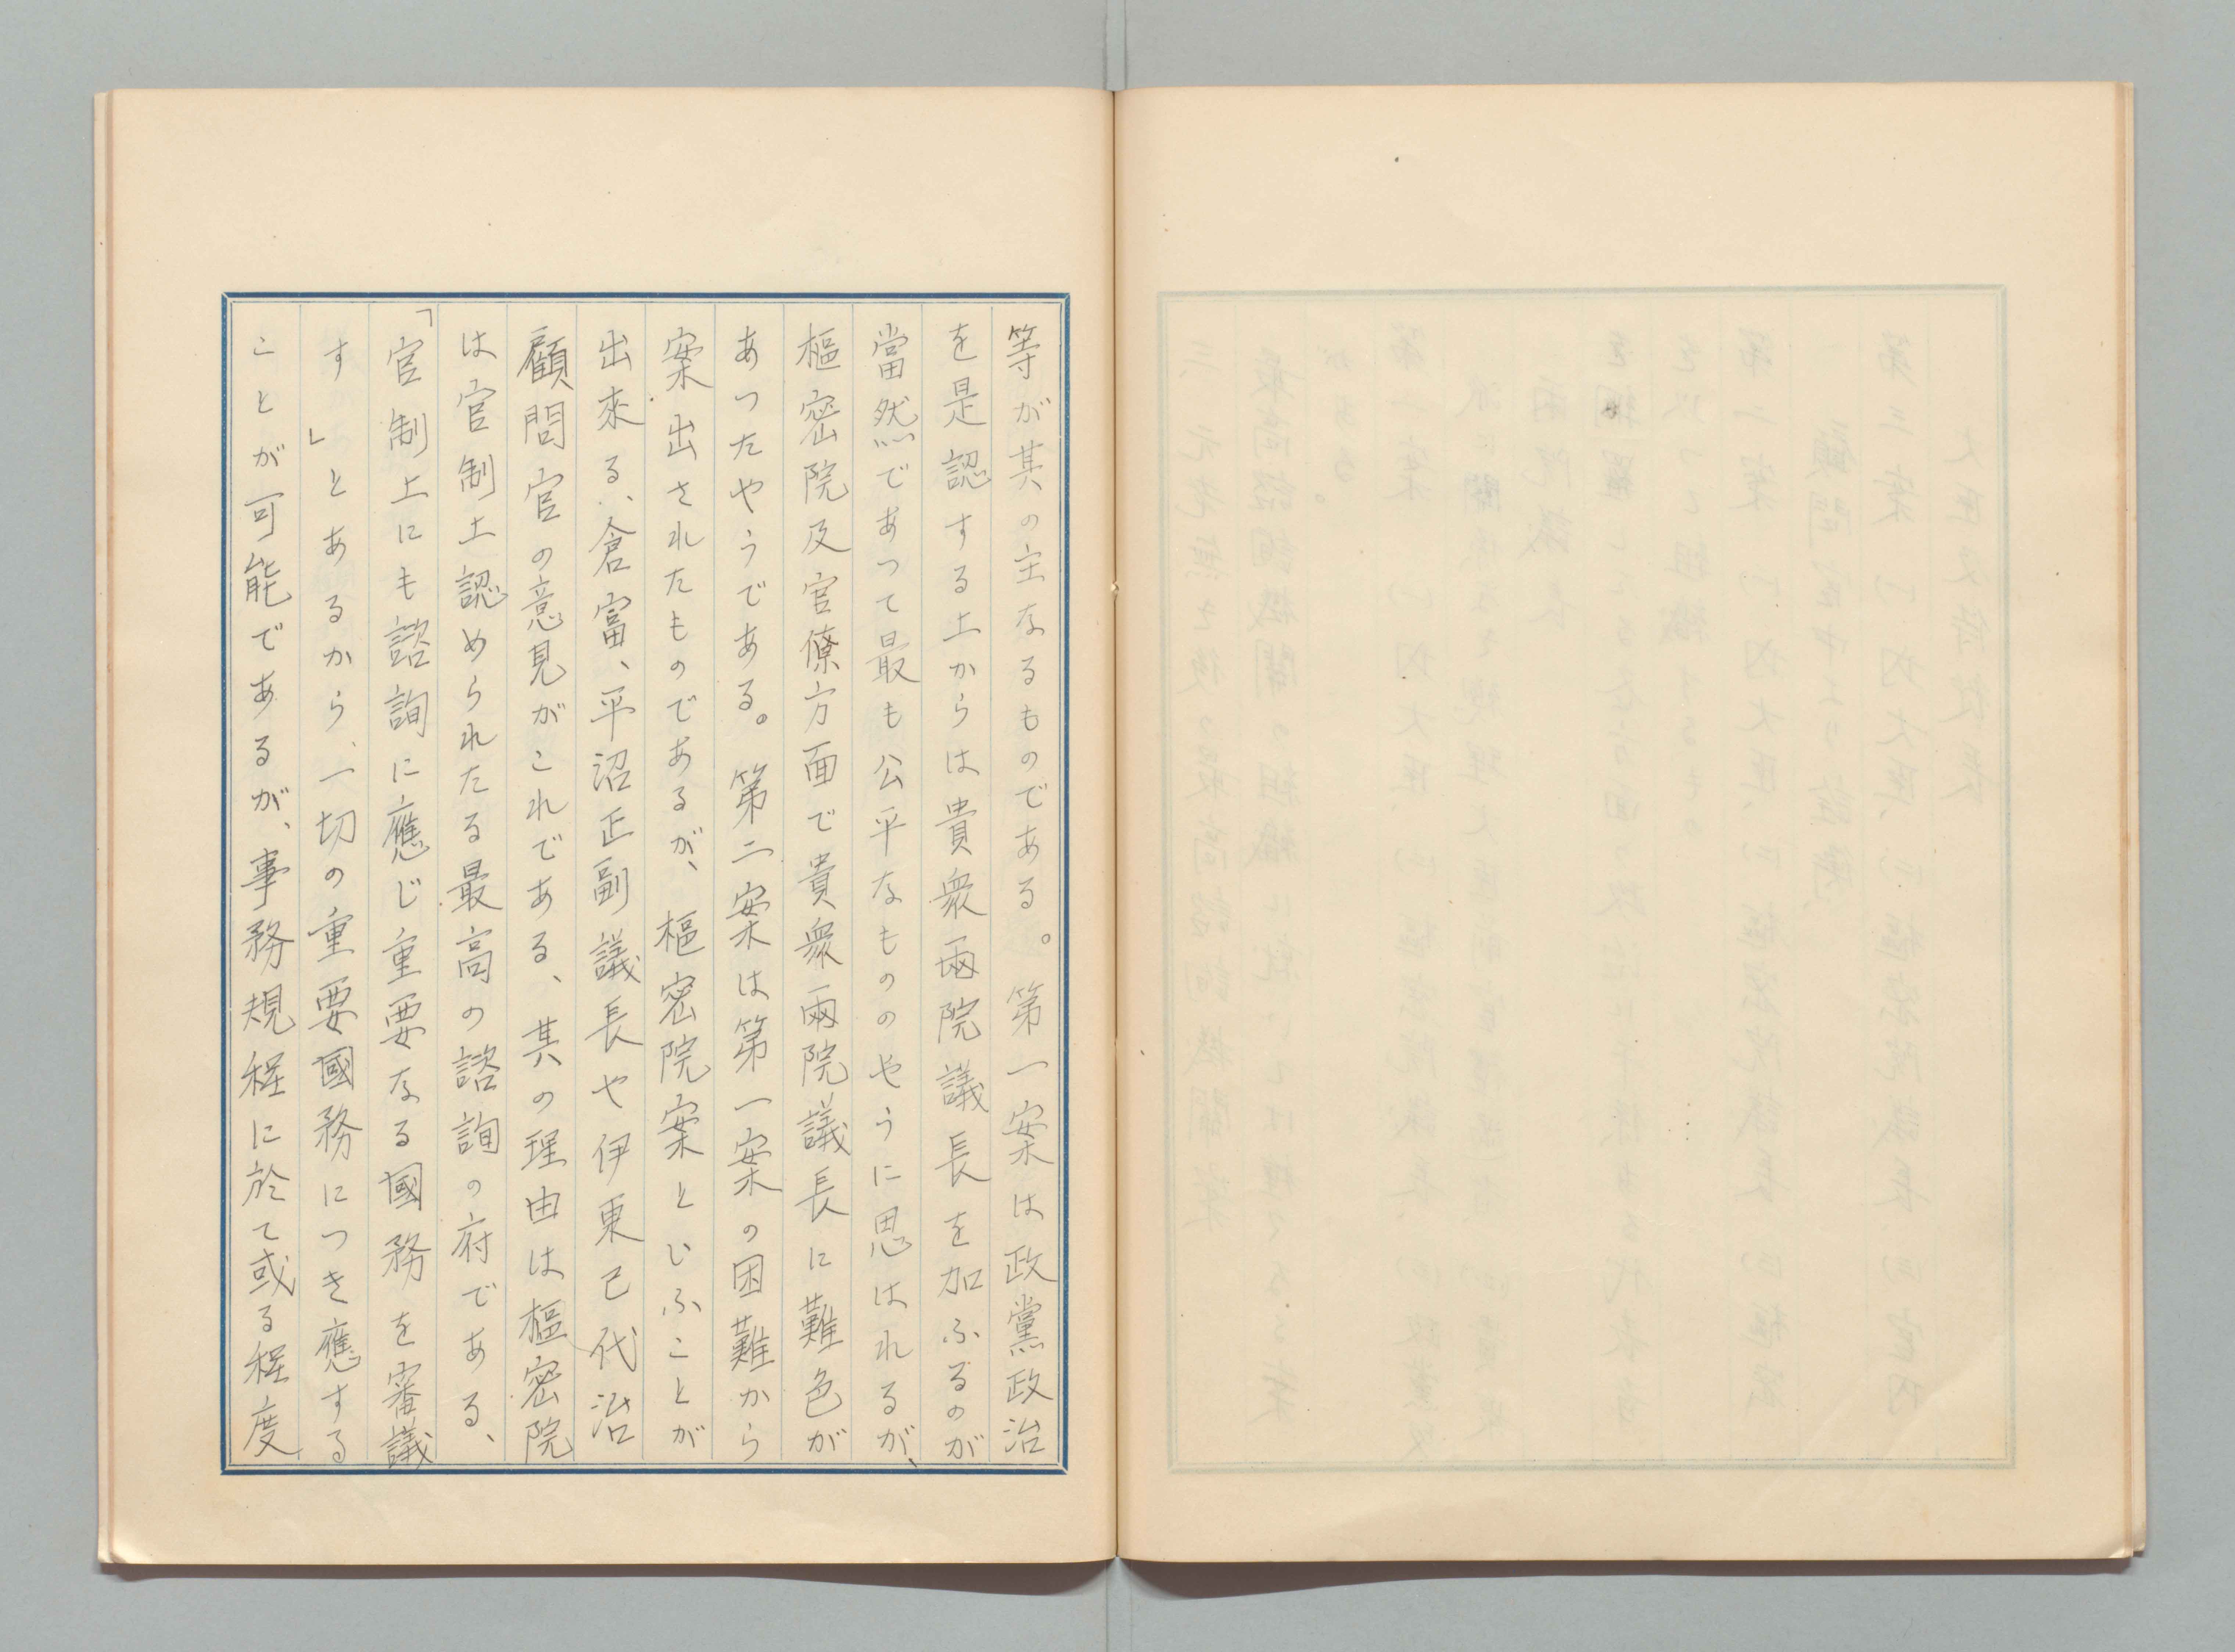 等が其の主なるものである。第一案は政黨政治
を是認する上からは貴衆兩院議長を加ふるのが
當然であつて最も公平なもののやうに思はれるが、
樞密院及官僚方面で貴衆兩院議長に難色が
あつたやうである。第二案は第一案の困難から
案出されたものであるが、樞密院案といふことが
出來る、倉富、平沼正副議長や伊東巳代治
顧問官の意見がこれである、其の理由は樞密院
は官制上認められたる最高の諮詢の府である、
「官制上にも諮詢に應じ重要なる國務を審議
す」とあるから、一切の重要國務につき應する
ことが可能であるが、事務規程に於て或る程度